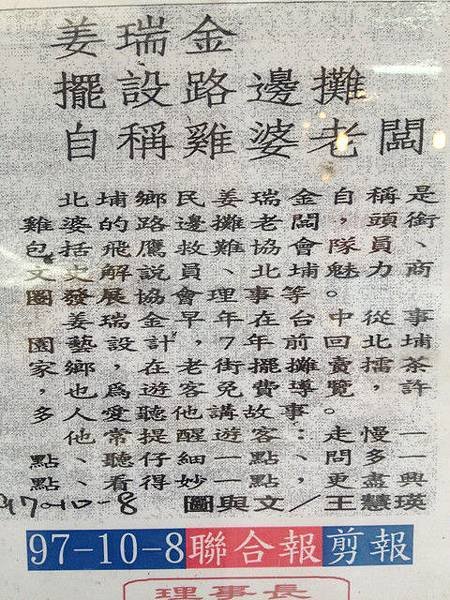 姜瑞金
擺設路邊攤
自稱雞婆老闆
北埔鄉民姜瑞金自稱是
雞婆的路邊攤老闆,頭銜
包括飛鷹救難協會隊員、
文史解說員、北埔魅力商
圈發展協會理事等。
姜瑞金早年在台中從事
園藝設計,7年前回北埔
家鄉在老街擺攤賣擂茶,
也為遊客免費導覽,許
多人愛聽他講故事。
他常提醒遊客:走慢一
點、聽仔細一點,問多一
點、看得妙一點,更盡興
97-10-8
圖與文/王慧瑛
97-10-8聯合報剪報
理事長